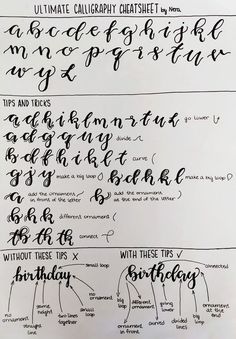 ULTIMATE CALLIGRAPHY CHEATSHEET by Nera
a b c d e f g h i j k l
m n o p q r s t u v
w y z
TIPS AND TRICKS
a d h i k l m n r t u h go lower
a d g q u y divide
b d f h i k l t curve
g j y make a big loop b d h k l make a big loop
a add the ornament in front of the letter b add the ornament at the end of the letter
b h k different ornament
tb th tk connect
WITHOUT THESE TIPS X WITH THESE TIPS ✓
small loop connected
birthday birthday
no ornament
straight line
same height
two lines together
small loop
no ornament
big loop
ornament in front
different ornament
curved
going lower
divided lines
big loop
ornament at the end